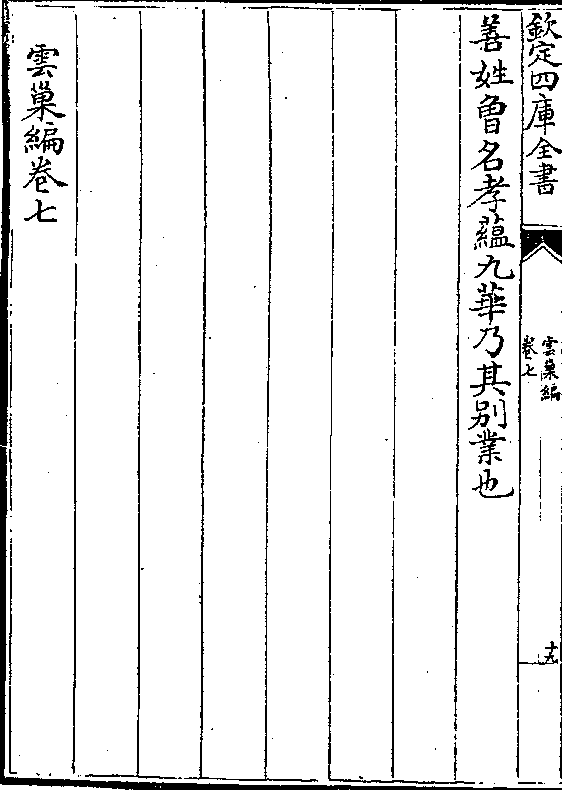 欽定四庫全書
雲巢編
卷七
十九
善姓魯名孝蘊九華乃其别業也
雲巢編卷七